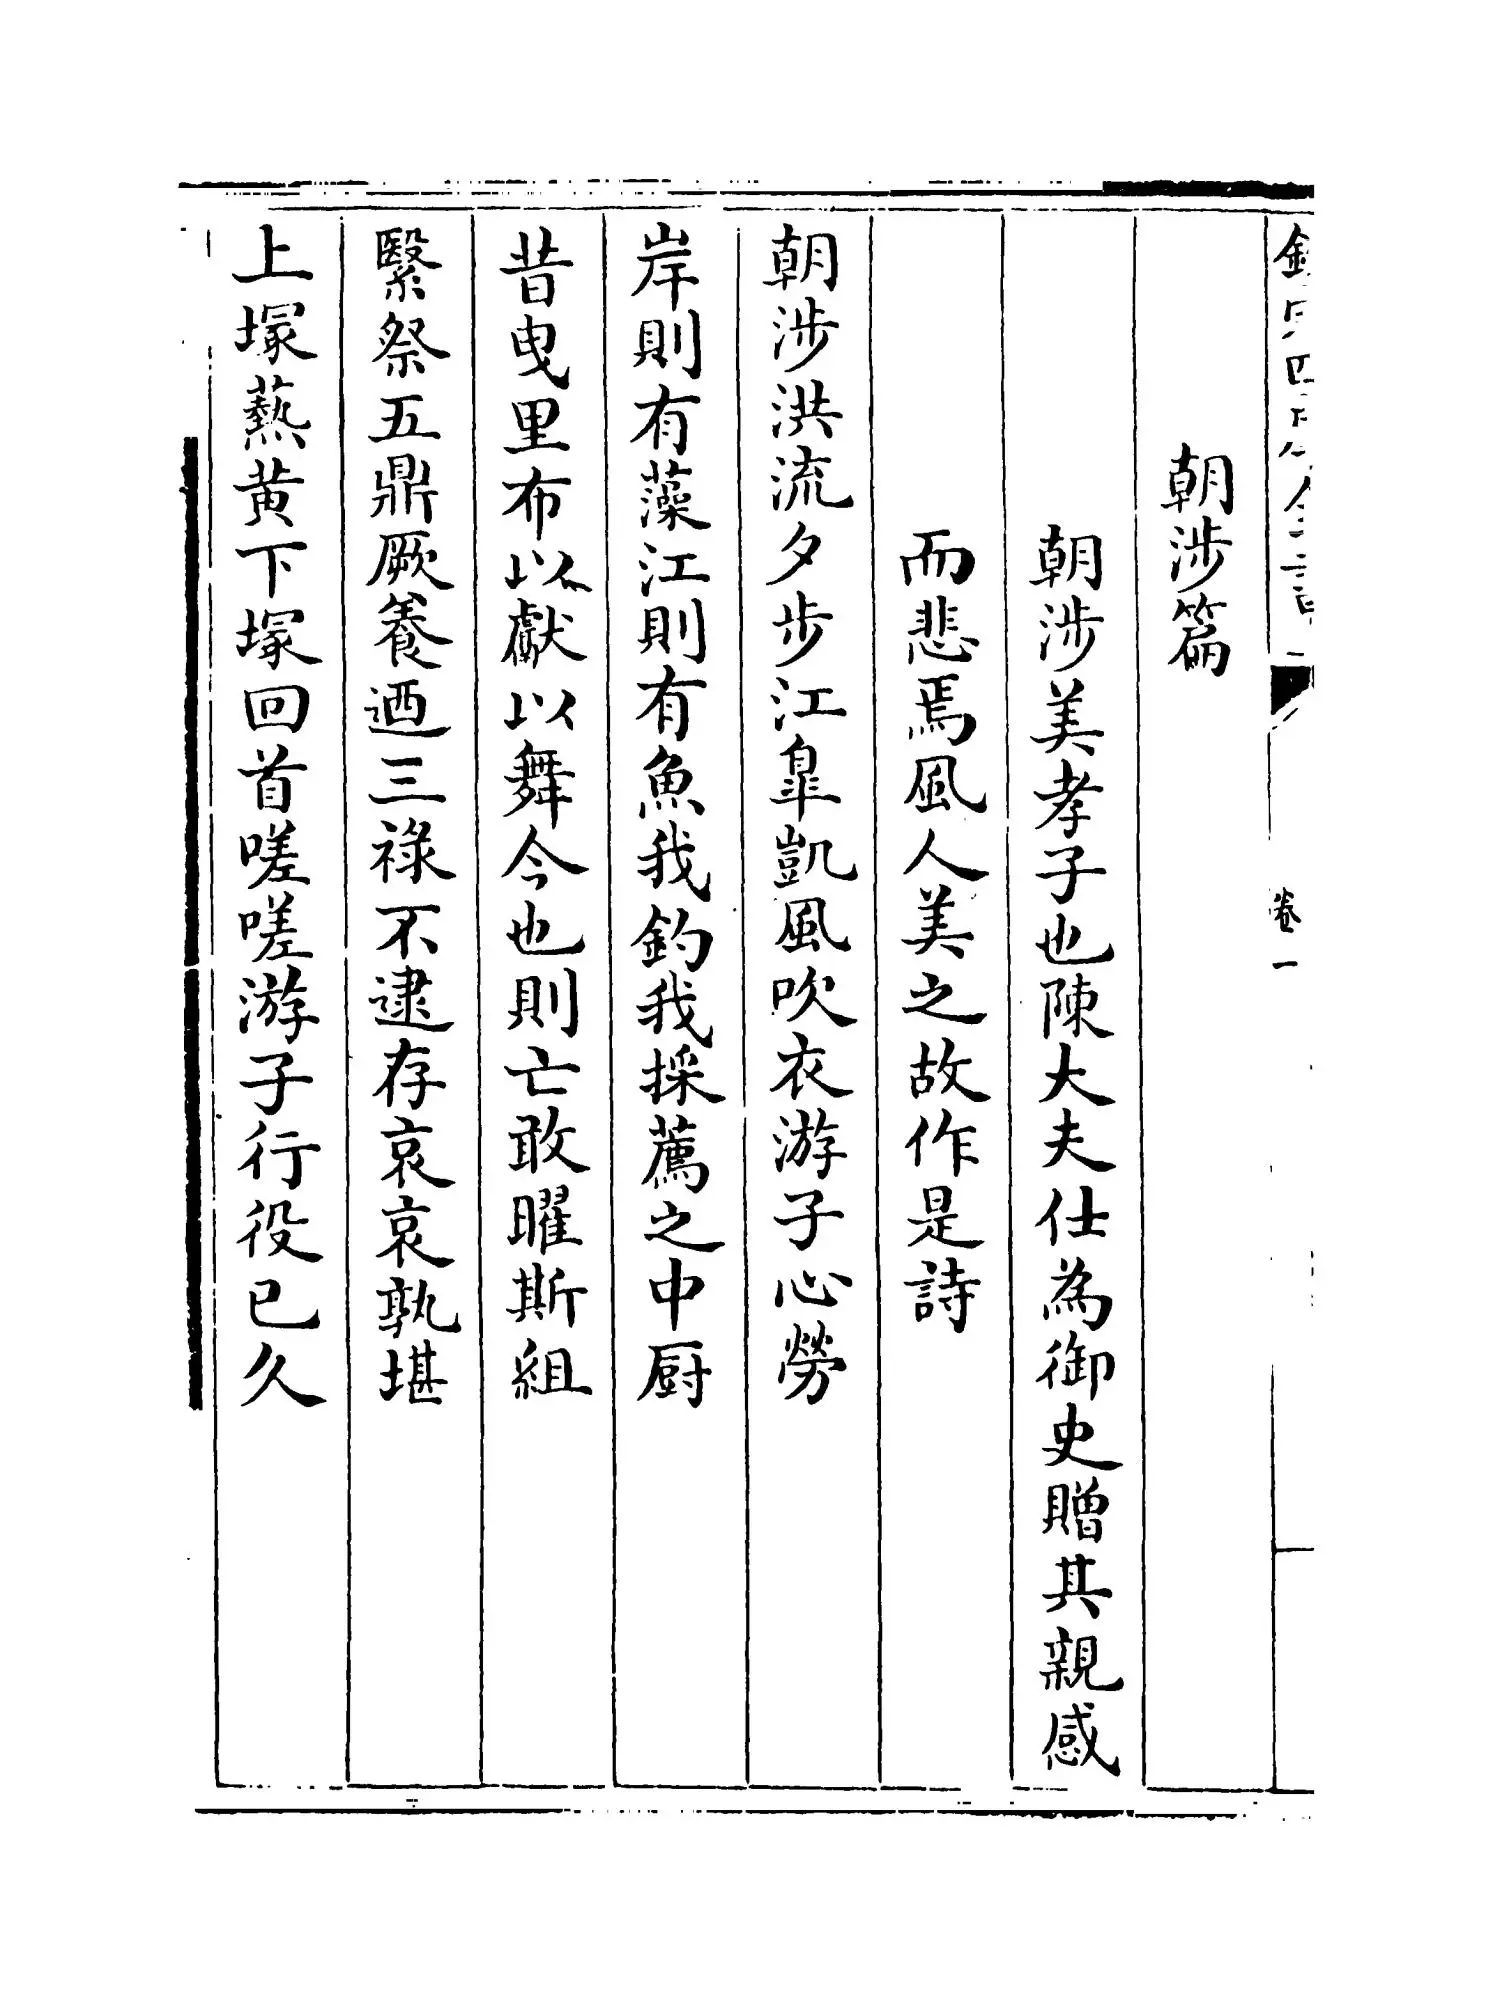 朝涉篇
朝涉美孝子也陳大夫仕為御史贈其親感
而悲焉風人美之故作是詩
朝涉洪流夕步江臯凱風吹衣游子心勞
岸則有藻江則有魚我釣我採薦之中厨
昔曳里布以獻以舞今也則亡敢曜斯組
緊祭五鼎厥養迺三祿不逮存哀哀孰堪
上塚爇黄下塚回首嗟嗟游子行役已久
卷一